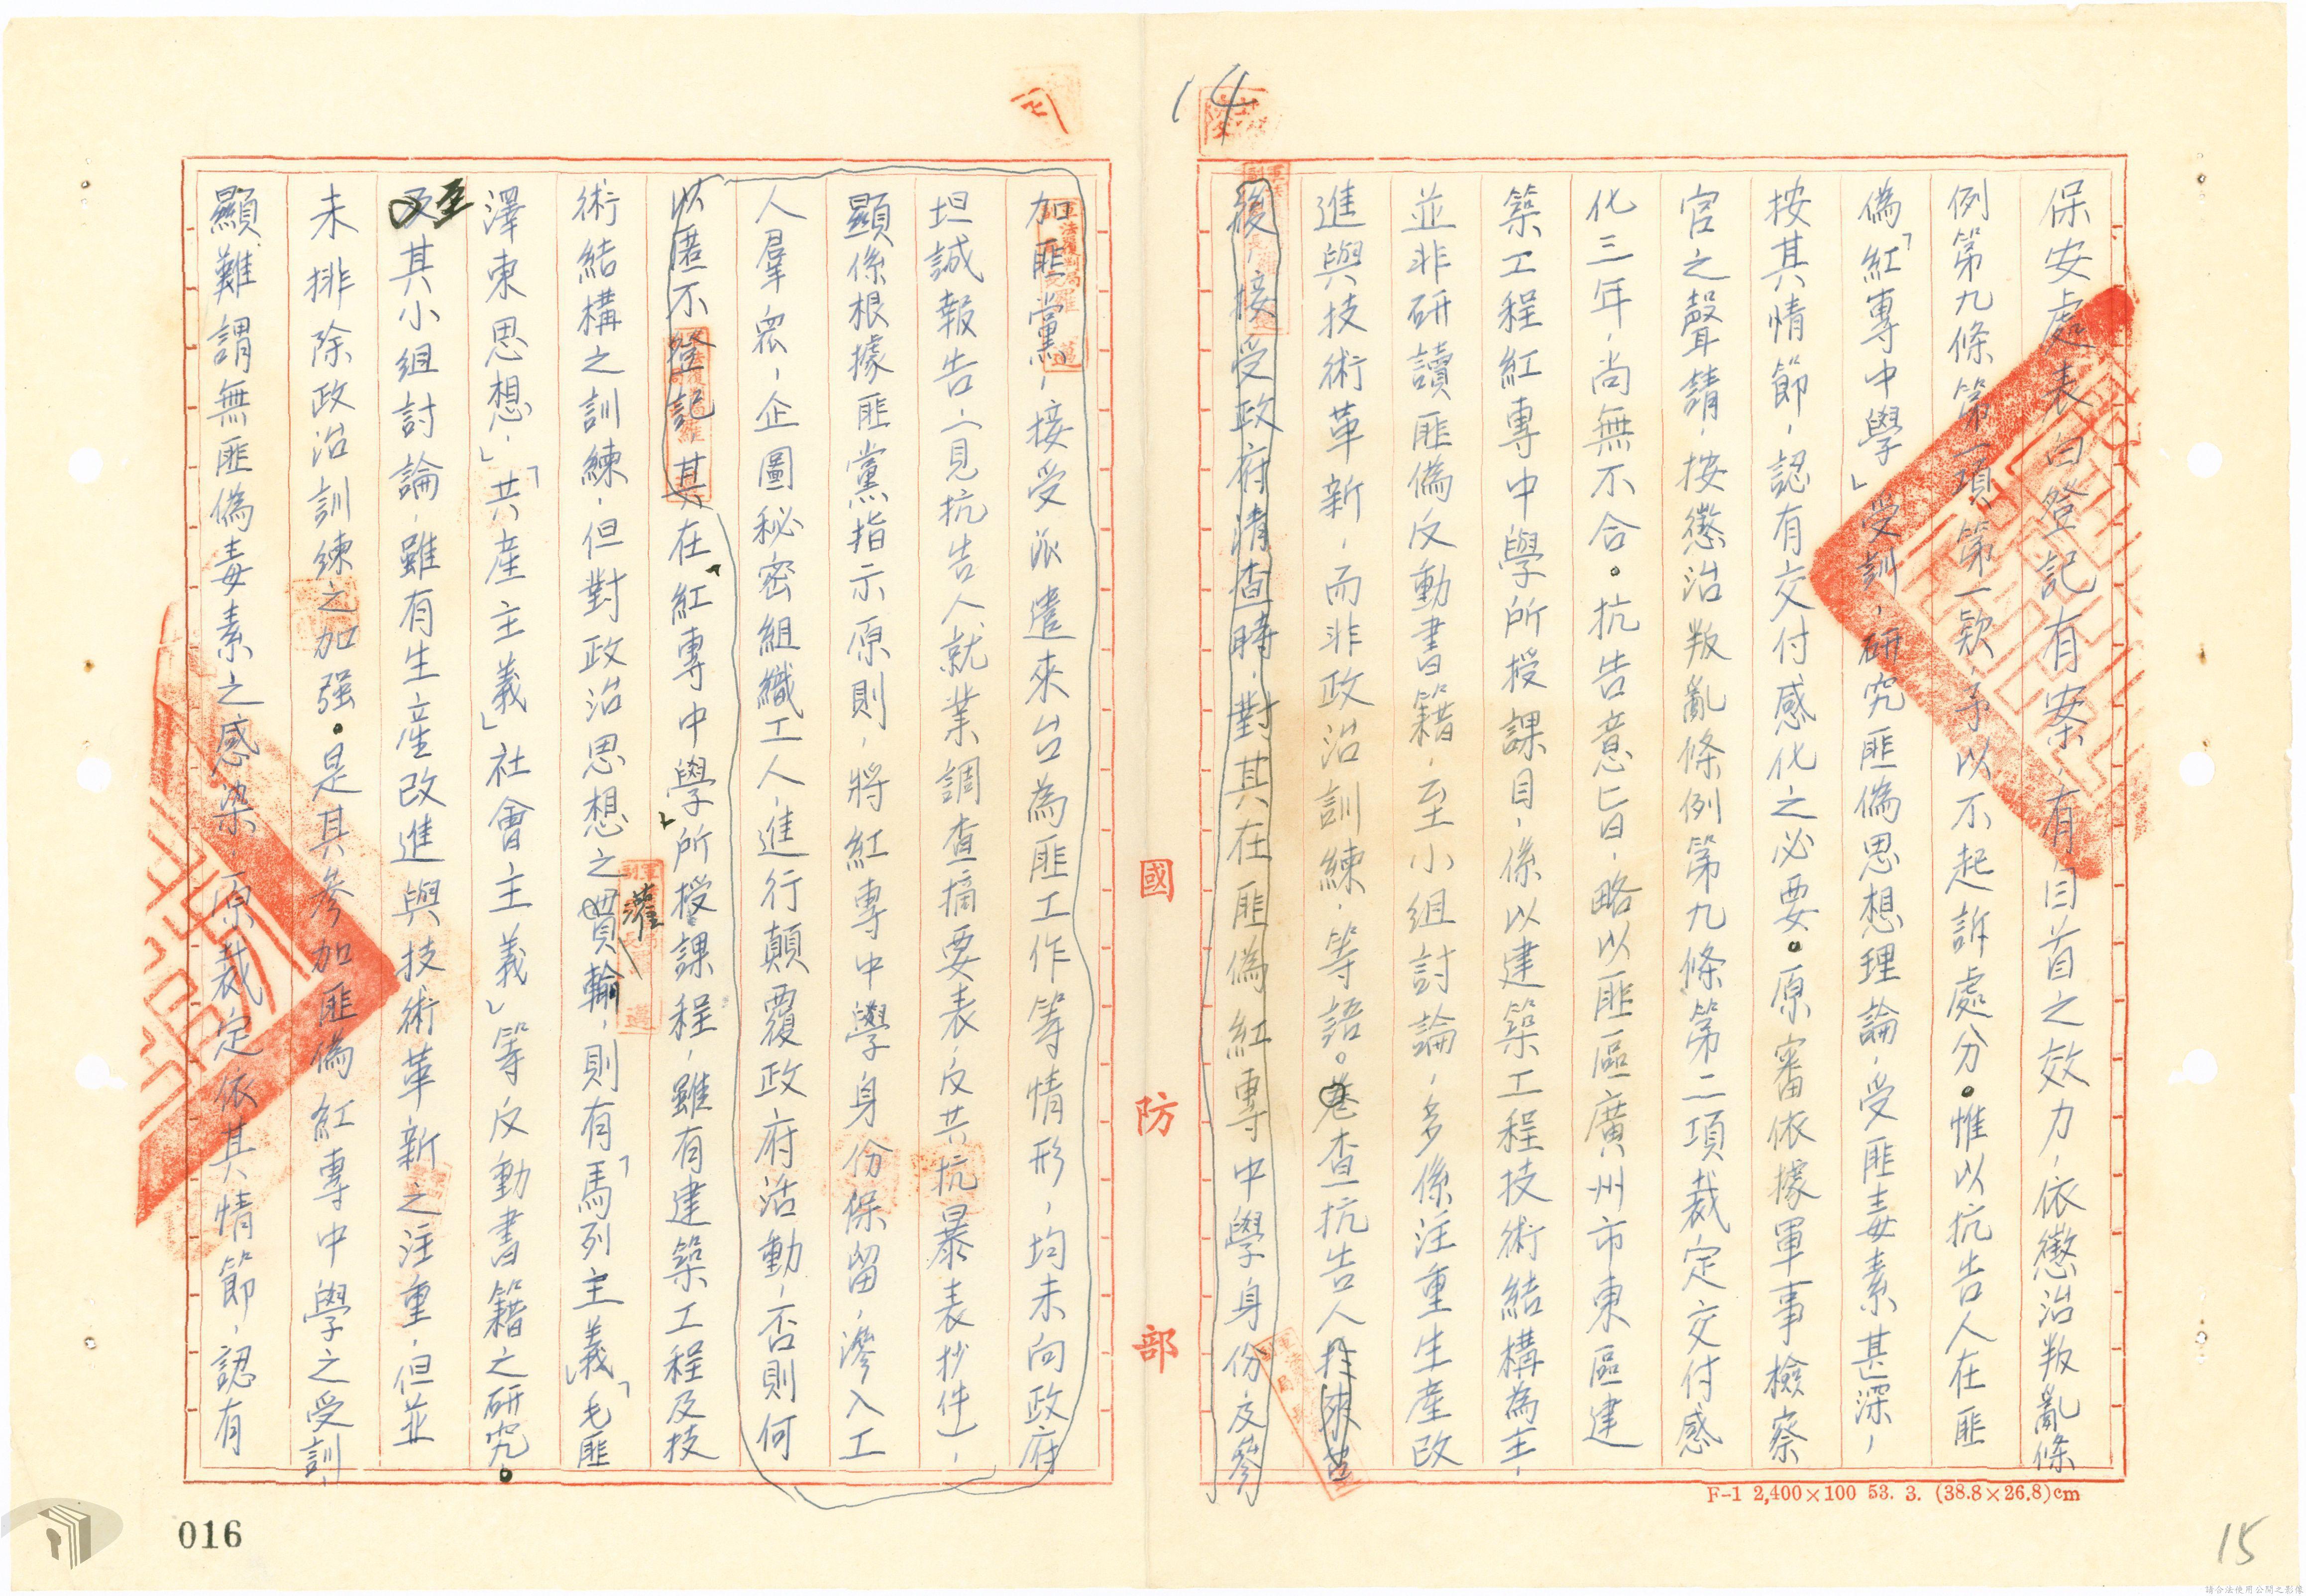 14
保安處表白登記有案，有自首之效力，依懲治叛亂條
例第九條第一項第一款，予以不起訴處分。惟以抗告人在匪
偽「紅專中學」受訓，研究匪偽思想理論，受匪毒素甚深，
按其情節，認有交付感化之必要。原審依據軍事檢察
官之聲請，按懲治叛亂條例第九條第二項裁定交付感
化三年，尚無不合。抗告意旨，略以匪區廣州市東區建
築工程紅專中學所授課目，係以建築工程技術結構為主，
並非研讀匪偽反動書籍，至小組討論，多係注重生產改
進與技術革新，而非政治訓練，等語。卷查抗告人
後，接受政府清查時，對其在匪偽紅專中學身份，及參
國防部
加匪黨，接受派遣來台為匪工作等情形，均未向政府
坦誠報告（見抗告人就業調查摘要表，反共抗暴表抄件），
顯係根據匪黨指示原則，將紅專中學身份保留，滲入工
人羣眾，企圖秘密組織工人，進行顛覆政府活動，否則何
以匿不登記，其在「紅專中學」所授課程，雖有建築工程及技
術結構之訓練，但對政治思想之灌輸，則有「馬列主義」「毛匪
澤東思想」，「共產主義」社會主義」等反動書籍之研究。
至其小組討論，雖有生產改進與技術革新之注重，但並
未排除政治訓練之加强。是其參加匪偽紅專中學之受訓，
顯難謂無匪偽毒素之感染，原裁定依其情節，認有
F-1 2,400×100 53. 3. (38.8×26.8)cm
016
15
請合法使用公開之影像